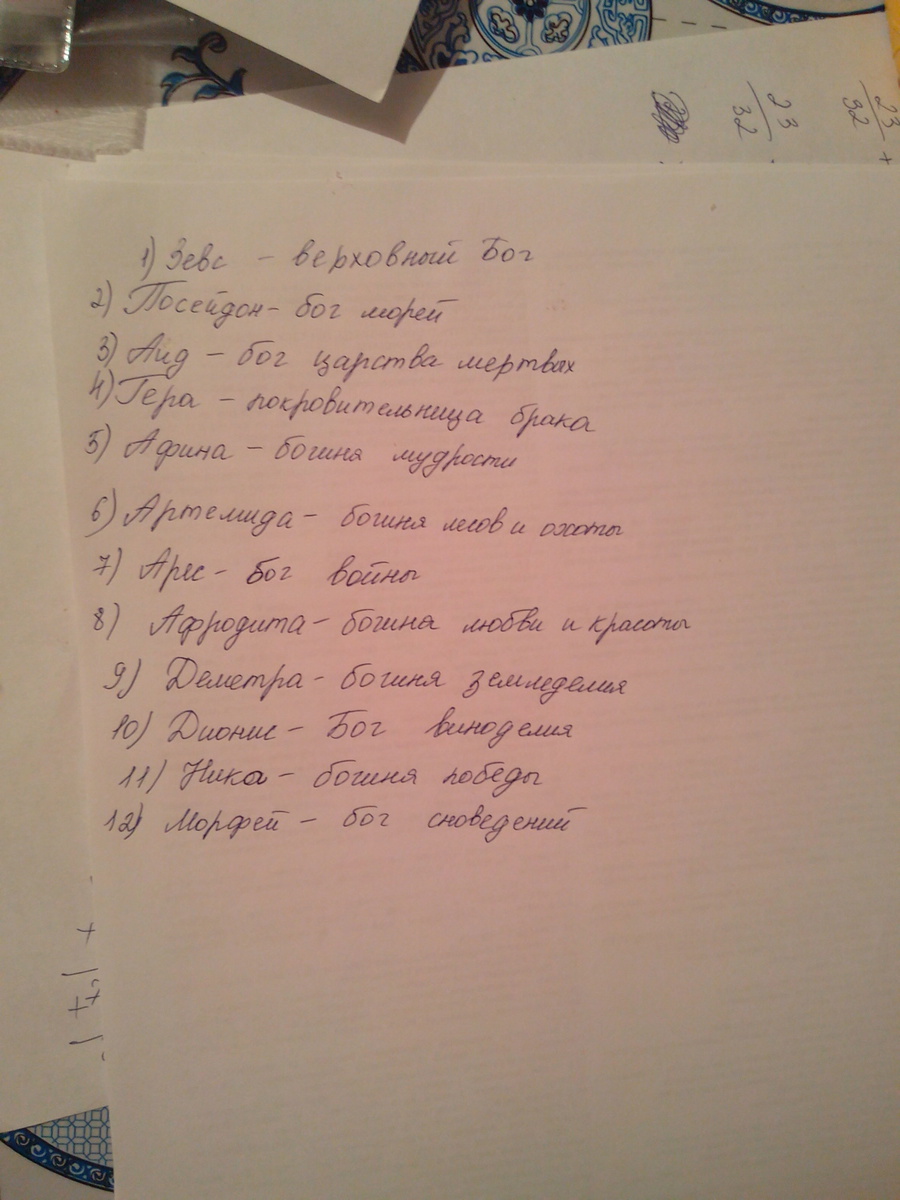 23
32
23
32
+
1) Зевс – верховный Бог
2) Посейдон – бог морей
3) Аид – бог царства мертвых
4) Гера – покровительница брака
5) Афина – богиня мудрости
6) Артемида – богиня лесов и охоты
7) Арес – бог войны
8) Афродита – богиня любви и красоты
9) Деметра – богиня земледелия
10) Дионис – Бог виноделия
11) Ника – богиня победы
12) Морфей – бог сноведений